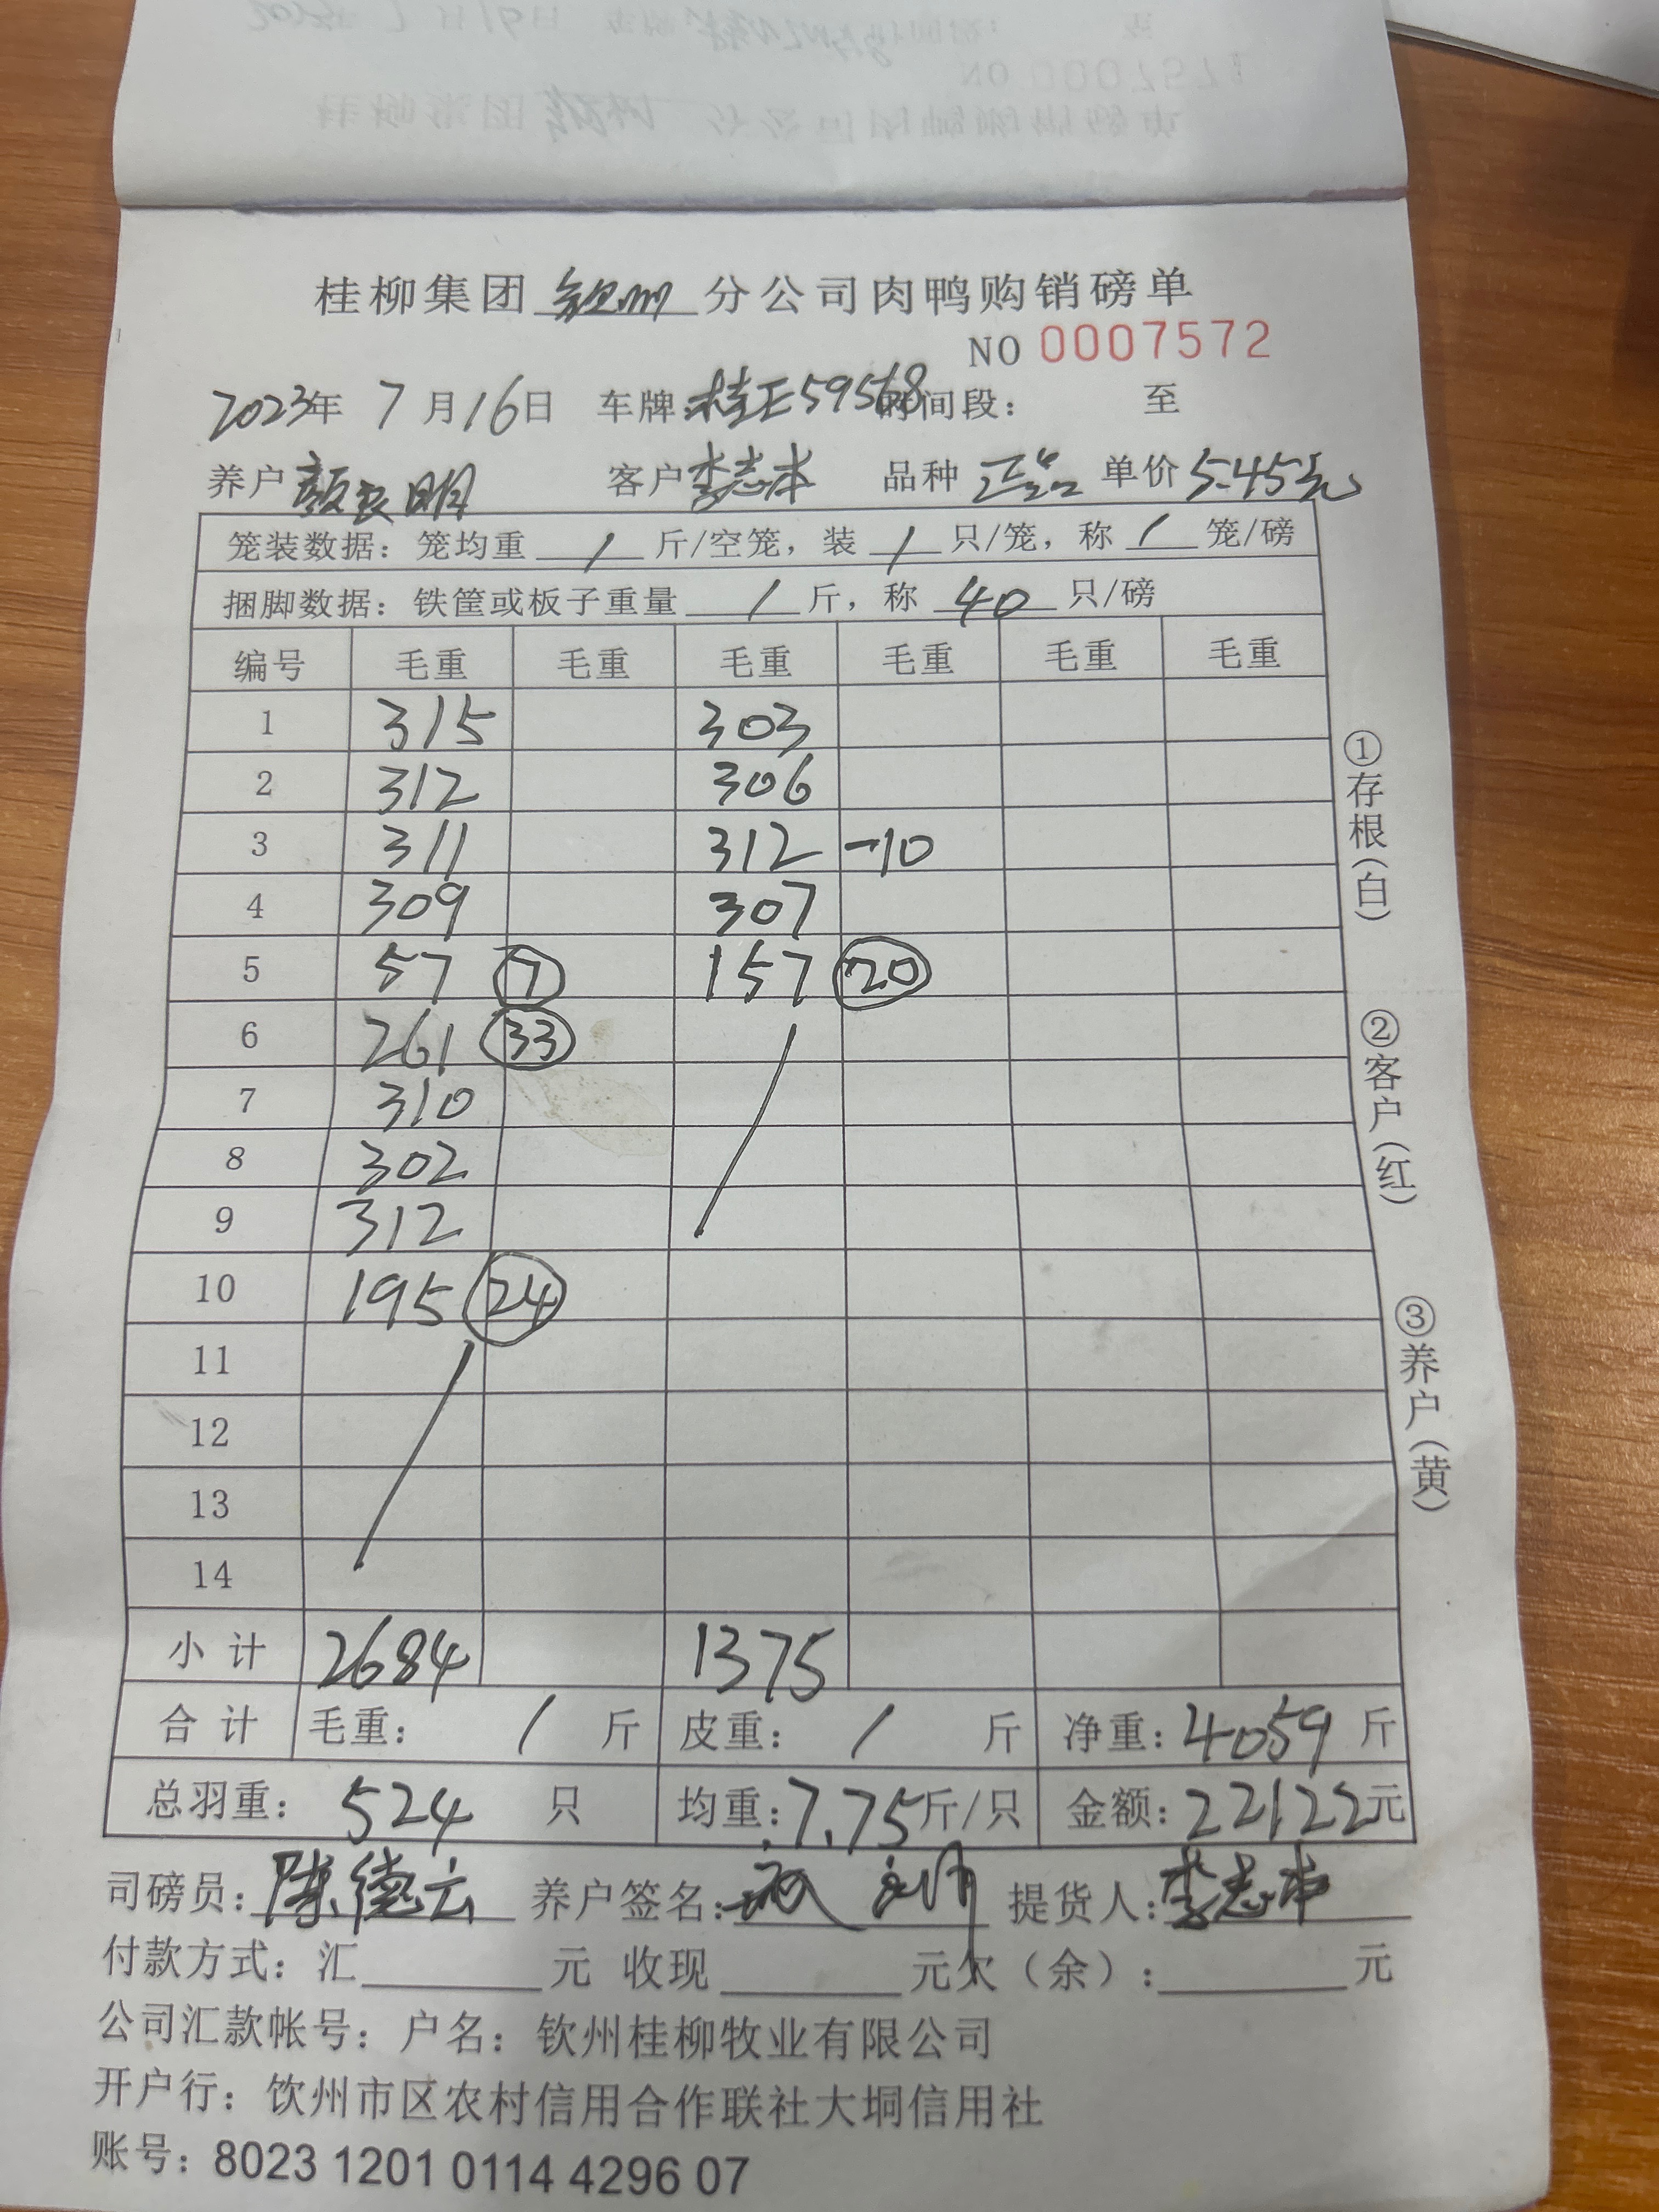 桂柳集团 钦州 分公司肉鸭购销磅单
NO 0007572
2023年 7月16日 车牌:桂E59568 时间段: 至
养户 颜良明 客户 李志本 品种 正品 单价 5.45元
笼装数据: 笼均重 / 斤/空笼, 装 / 只/笼, 称 / 笼/磅
捆脚数据: 铁筐或板子重量 / 斤, 称 40 只/磅
编号 毛重 毛重 毛重 毛重 毛重 毛重
1 315 303
2 312 306
3 311 312 -10
4 309 307
5 57 7 157 20
6 261 33
7 310
8 302
9 312
10 195 24
11
12
13
14
小计 2684 1375
合计 毛重: / 斤 皮重: / 斤 净重: 4059 斤
总羽重: 524 只 均重: 7.75斤/只 金额: 22122元
司磅员: 陈德云 养户签名: 提货人: 李志本
付款方式: 汇 元 收现 元欠(余): 元
公司汇款帐号: 户名: 钦州桂柳牧业有限公司
开户行: 钦州市区农村信用合作联社大垌信用社
账号: 8023 1201 0114 4296 07
①存根(白)
②客户(红)
③养户(黄)